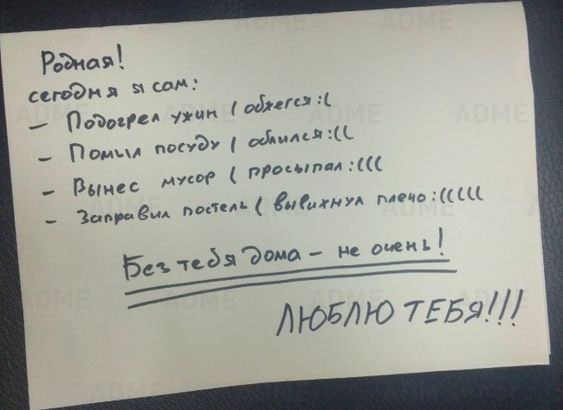 Родная!
сегодня я сам:
– Подогрел ужин ( обжегся :(
– Помыл посуду ( облился :((
– Вынес мусор ( просыпал :(((
– Заправил постель ( вывихнул плечо :(((((
Без тебя дома – не очень!
ЛЮБЛЮ ТЕБЯ!!!
ADME
ADME
ADME
ADME
ADME
ADME
ADME
ADME